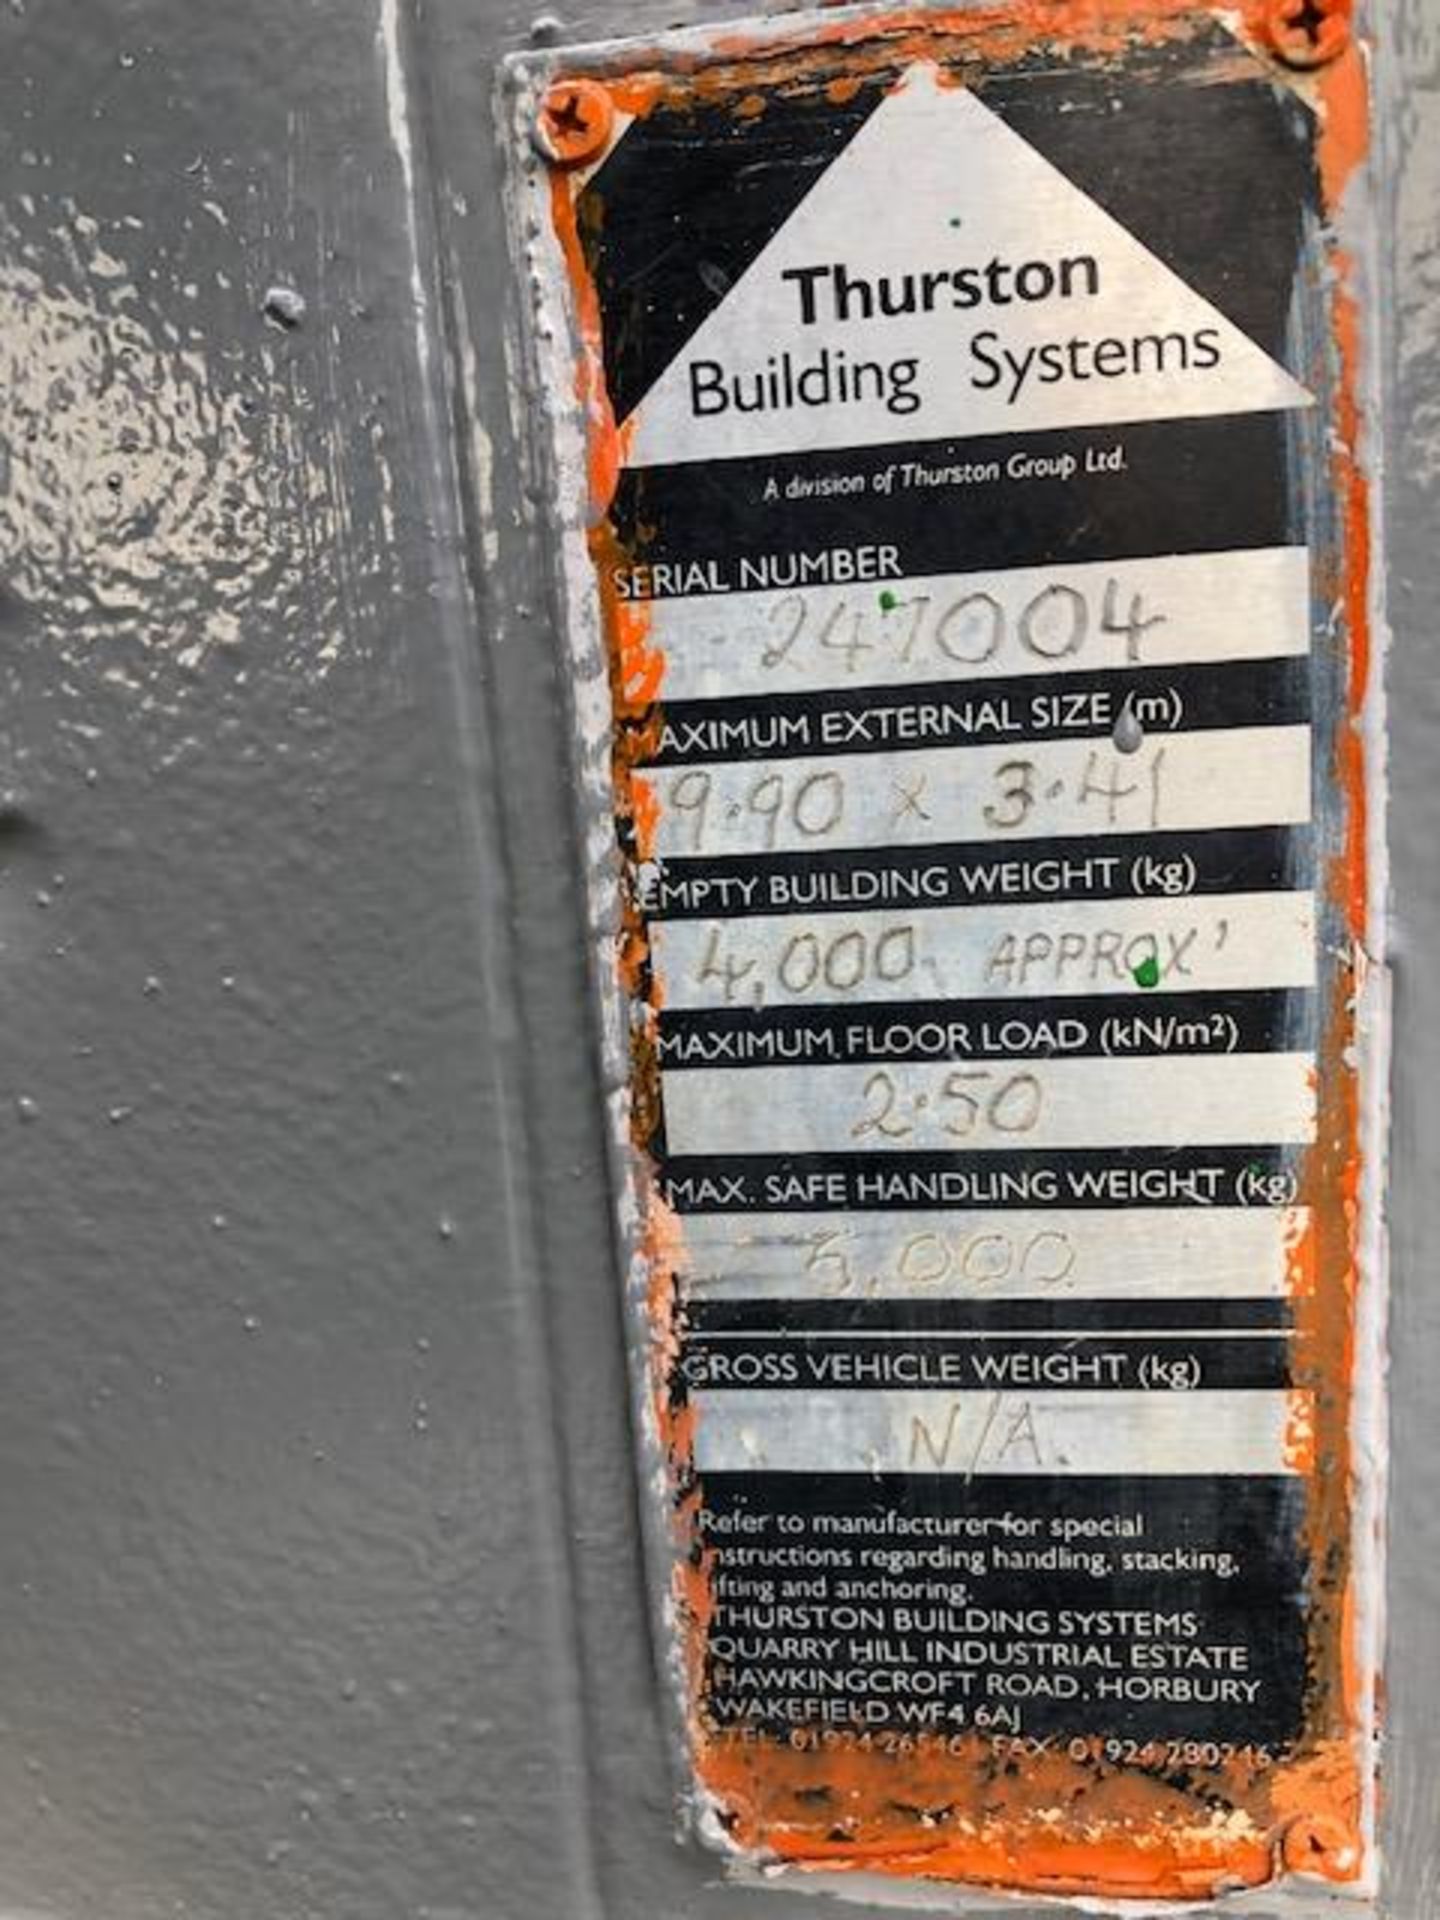 Thurston
Building Systems
A division of Thurston Group Ltd.
SERIAL NUMBER
247004
MAXIMUM EXTERNAL SIZE (m)
9.90 x 3.41
EMPTY BUILDING WEIGHT (kg)
4,000 APPROX'
MAXIMUM FLOOR LOAD (kN/m²)
2.50
MAX. SAFE HANDLING WEIGHT (kg)
5,000
GROSS VEHICLE WEIGHT (kg)
N/A.
Refer to manufacturer for special
instructions regarding handling, stacking,
lifting and anchoring.
THURSTON BUILDING SYSTEMS
QUARRY HILL INDUSTRIAL ESTATE
HAWKINGCROFT ROAD, HORBURY
WAKEFIELD WF4 6AJ
TEL: 01924 FAX: 01924 280246